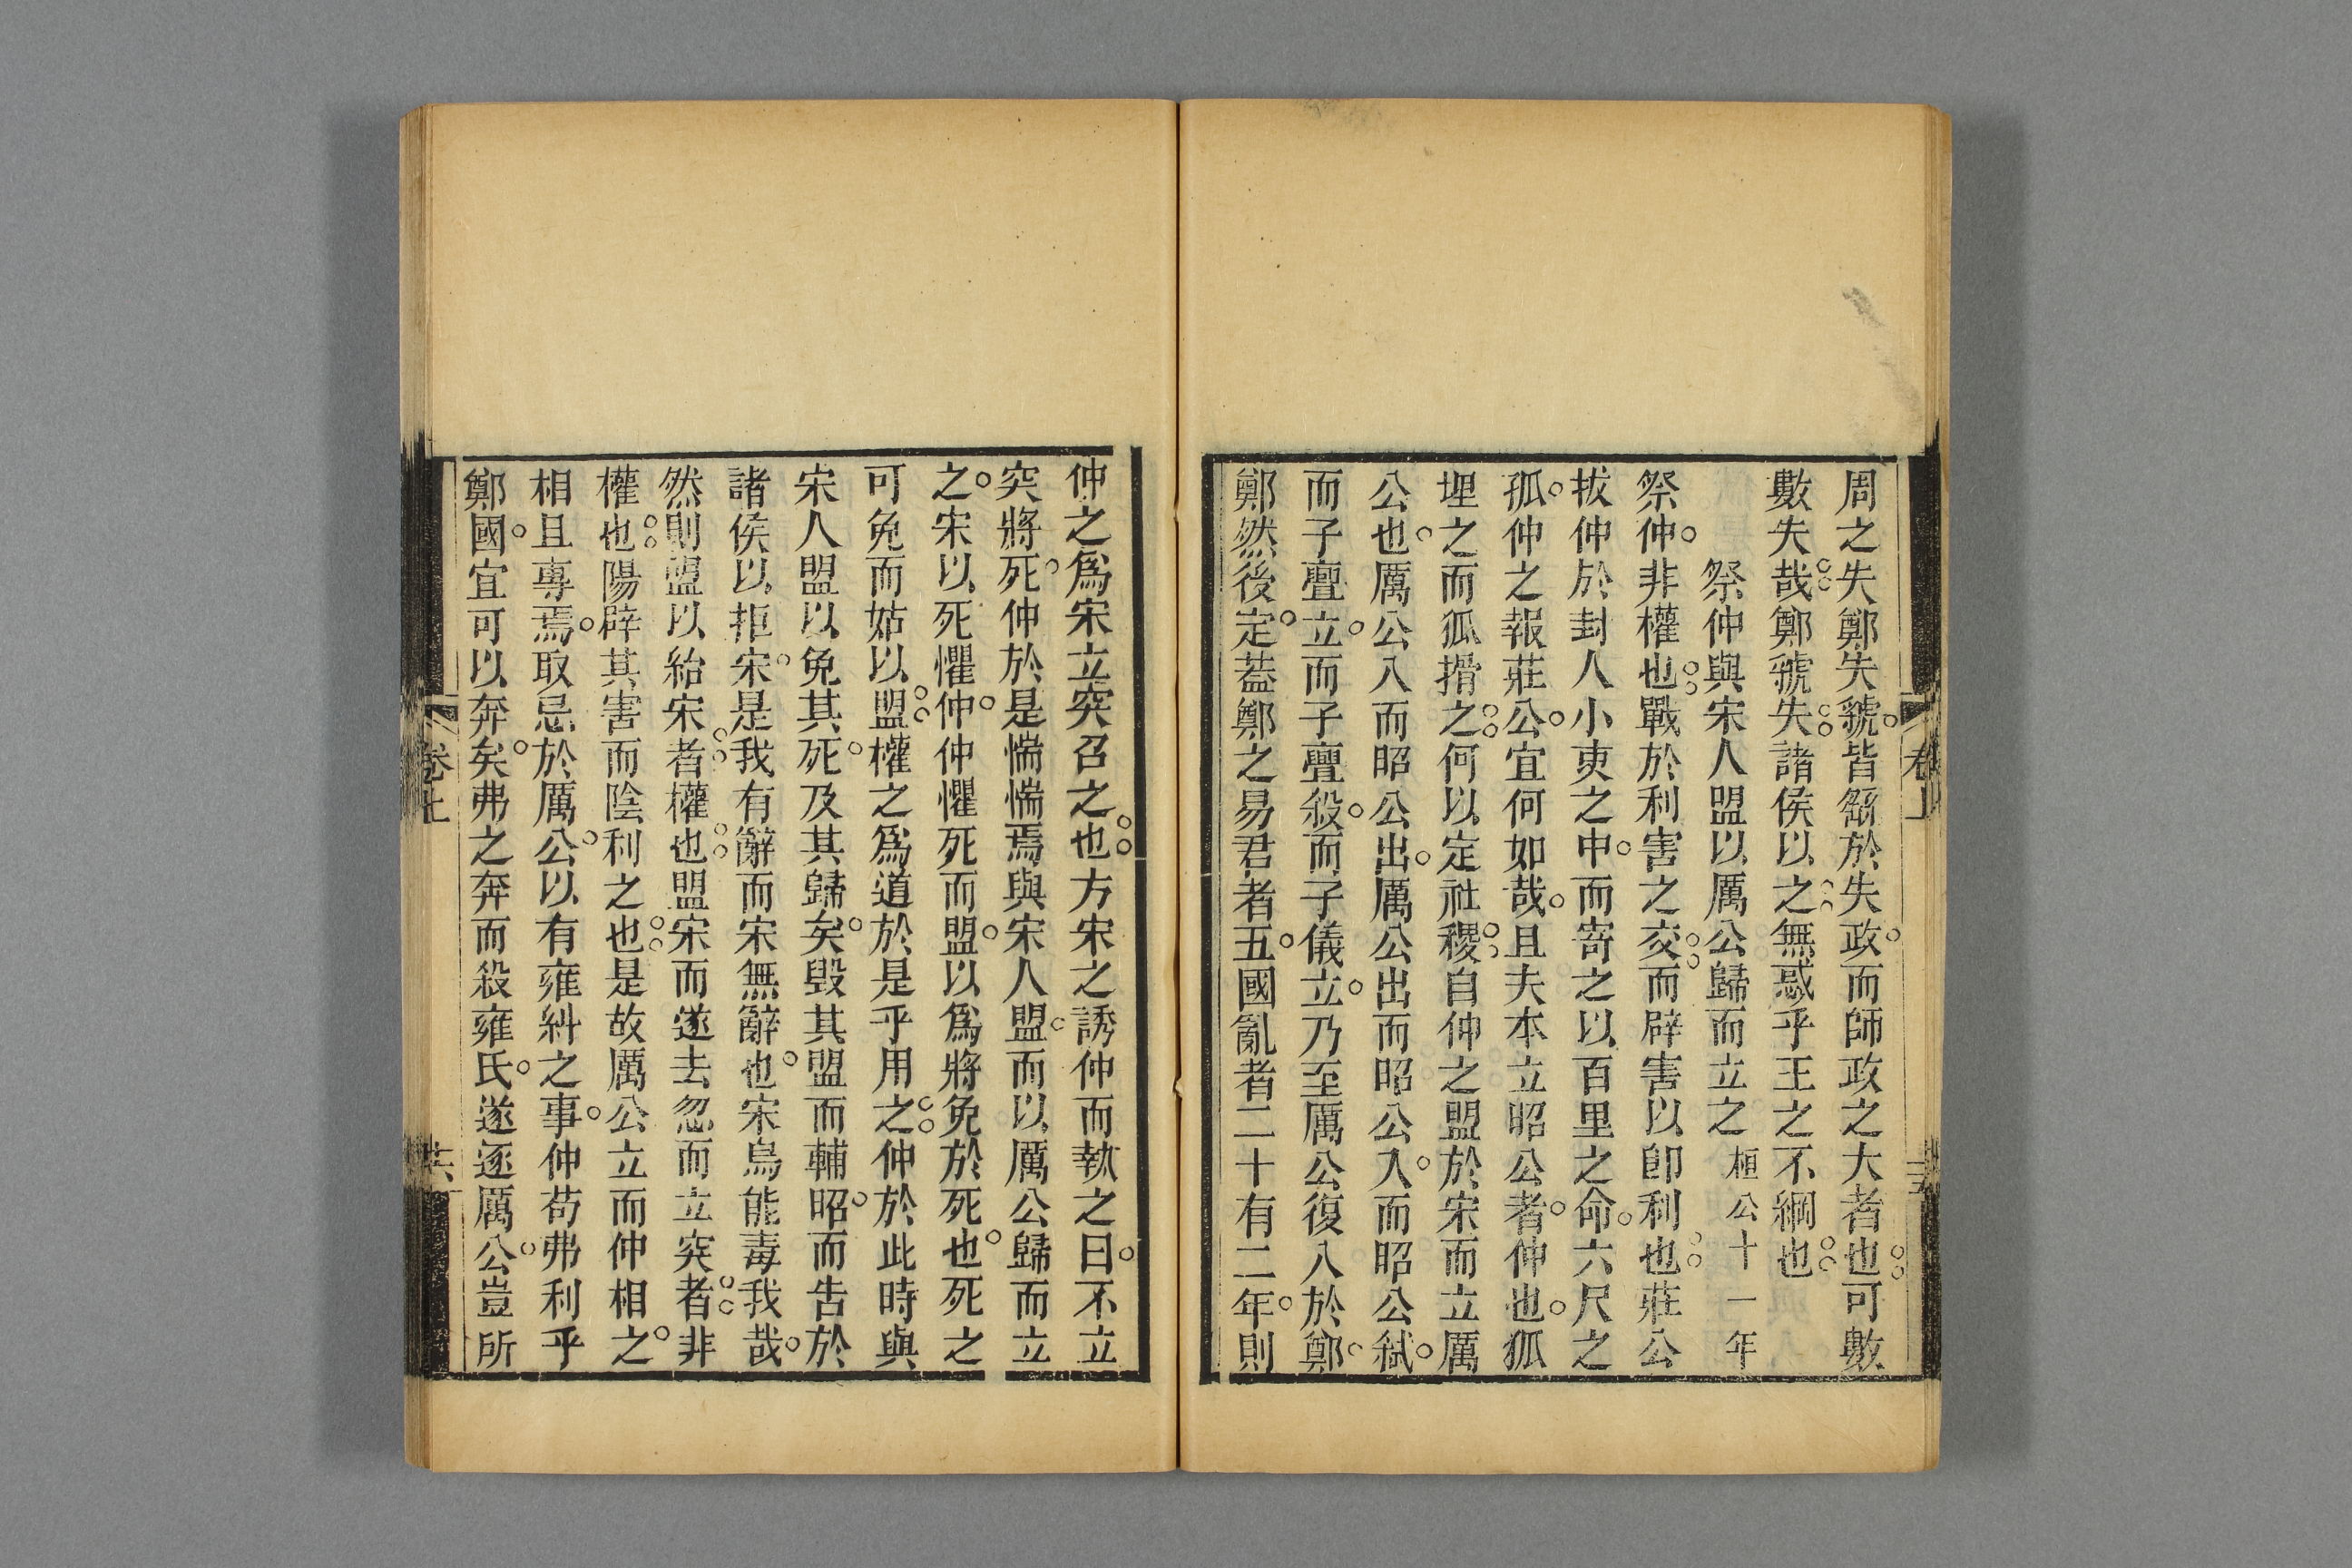 周之失鄭失虢皆繇於失政而師政之大者也可數
數失哉鄭虢失諸侯以之無惑乎王之不綱也
祭仲與宋人盟以厲公歸而立之桓公十一年
祭仲非權也戰於利害之交而辟害以卽利也莊公
拔仲於封人小吏之中而寄之以百里之命六尺之
孤仲之報莊公宜何如哉且夫本立昭公者仲也狐
埋之而狐搰之何以定社稷自仲之盟於宋而立厲
公也厲公入而昭公出厲公出而昭公入而昭公弑
而子亹立而子亹殺而子儀立乃至厲公復入於鄭
鄭然後定葢鄭之易君者五國亂者二十有二年則
卷上
仲之爲宋立突召之也方宋之誘仲而執之曰不立
突將死仲於是惴惴焉與宋人盟而以厲公歸而立
之宋以死懼仲仲懼死而盟以爲將免於死也死之
可免而姑以盟權之爲道於是乎用之仲於此時與
宋人盟以免其死及其歸矣毀其盟而輔昭而告於
諸侯以拒宋是我有辭而宋無辭也宋烏能毒我哉
然則盟以紿宋者權也盟宋而遂去忽而立突者非
權也陽辟其害而陰利之也是故厲公立而仲相之
相且專焉取忌於厲公以有雍糾之事仲苟弗利乎
鄭國宜可以奔矣弗之奔而殺雍氏遂逐厲公豈所
卷上
十六